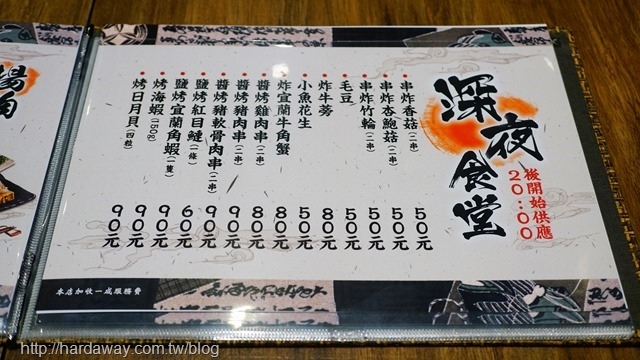 深夜食堂
20:00
後開始供應
串炸香菇(二串) 50元
串炸杏鮑菇(二串) 50元
串炸竹輪(二串) 50元
毛豆 50元
炸牛蒡 80元
小魚花生 50元
炸宜蘭牛角蟹 80元
醬烤雞肉串(二串) 80元
醬烤豬肉串(二串) 90元
醬烤豬軟骨肉串(二串) 90元
鹽烤紅目鰱(一條) 90元
鹽烤宜蘭角蝦(一隻) 60元
烤海蝦(100g) 90元
烤日月貝(四粒) 90元
本店加收一成服務費
http://hardaway.com.tw/blog